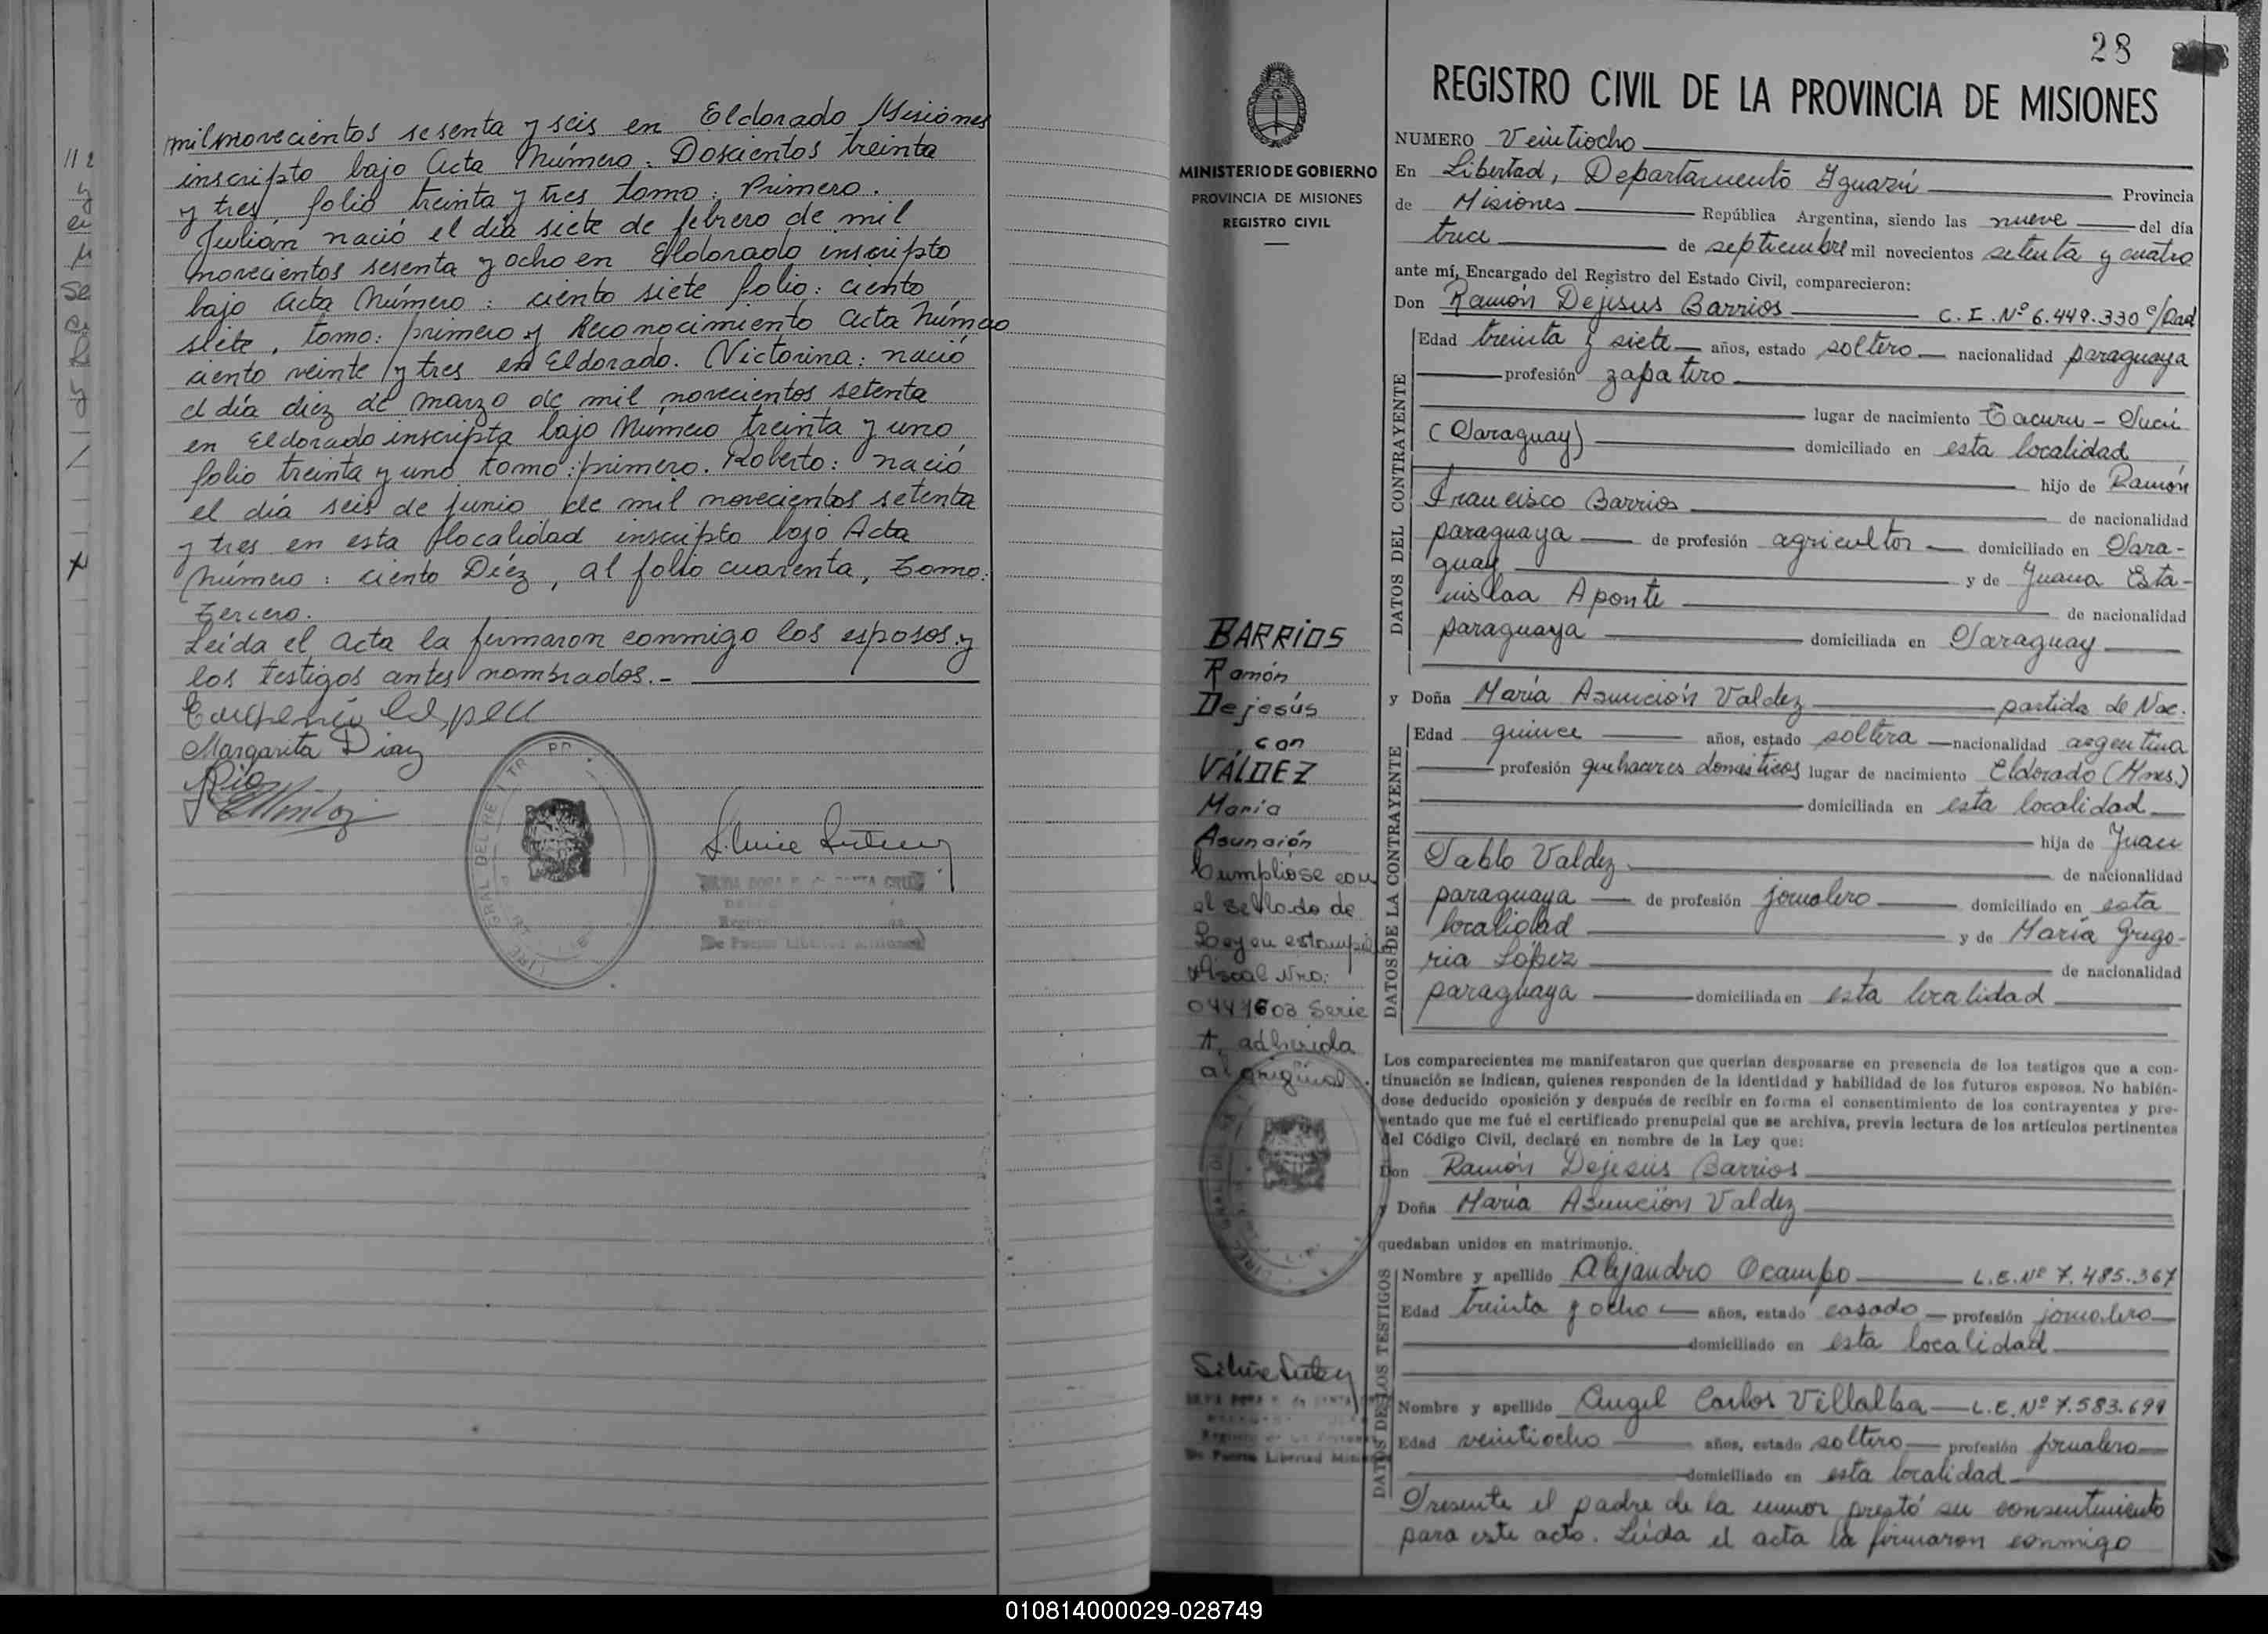 milnovecientos sesenta y seis en Eldorado Misiones
inscripto bajo Acta Número: Doscientos treinta
y tres, folio treinta y tres tomo: Primero.
Julián nació el día siete de febrero de mil
novecientos sesenta y ocho en Eldorado inscripto
bajo acta Número: ciento siete folio: ciento
siete, tomo: primero y Reconocimiento acta Número
ciento veinte y tres en Eldorado. Victorina: nació
el día diez de marzo de mil novecientos setenta
en Eldorado inscripta bajo Número treinta y uno
folio treinta y uno tomo: primero. Roberto: nació
el día seis de junio de mil novecientos setenta
y tres en esta localidad inscripto bajo Acta
Número: ciento Diéz, al folio cuarenta, Tomo:
Tercero.
Leída el acta la firmaron conmigo los esposos y
los testigos antes nombrados.-
Margarita Diaz
28
REGISTRO CIVIL DE LA PROVINCIA DE MISIONES
MINISTERIO DE GOBIERNO
PROVINCIA DE MISIONES
REGISTRO CIVIL
BARRIOS
Ramón
Dejesús
con
VALDEZ
María
Asunción
Cumplióse con
el sellado de
Ley en estampilla
fiscal Nro:
Serie
A, adherida
al original.
De Puerto Libertad Misiones
NUMERO Veintiocho
En Libertad, Departamento Iguazú Provincia
de Misiones República Argentina, siendo las nueve del día
trece de septiembre mil novecientos setenta y cuatro
ante mí, Encargado del Registro del Estado Civil, comparecieron:
Don Ramón Dejesus Barrios C. I. Nº 6.449.330
DATOS DEL CONTRAYENTE
Edad treinta y siete años, estado soltero nacionalidad paraguaya
profesión zapatero
lugar de nacimiento Tacuru - Pucú
(Paraguay) domiciliado en esta localidad
hijo de Ramón
Francisco Barrios de nacionalidad
paraguaya de profesión agricultor domiciliado en Para-
guay y de Juana Esta-
nislaa Aponte de nacionalidad
paraguaya domiciliada en Paraguay
y Doña María Asunción Valdez partida de Nac.
DATOS DE LA CONTRAYENTE
Edad quince años, estado soltera nacionalidad argentina
profesión quehaceres domésticos lugar de nacimiento Eldorado (Mnes.)
domiciliada en esta localidad
hija de Juan
Pablo Valdez de nacionalidad
paraguaya de profesión jornalero domiciliado en esta
localidad y de María Grego-
ria López de nacionalidad
paraguaya domiciliada en esta localidad
Los comparecientes me manifestaron que querían desposarse en presencia de los testigos que a con-
tinuación se indican, quienes responden de la identidad y habilidad de los futuros esposos. No habién-
dose deducido oposición y después de recibir en forma el consentimiento de los contrayentes y pre-
sentado que me fué el certificado prenupcial que se archiva, previa lectura de los artículos pertinentes
del Código Civil, declaré en nombre de la Ley que:
Don Ramón Dejesús Barrios
y Doña María Asunción Valdez
quedaban unidos en matrimonio.
DATOS DE LOS TESTIGOS
Nombre y apellido Alejandro Ocampo L.E.Nº 7.485.367
Edad treinta y ocho años, estado casado profesión jornalero
domiciliado en esta localidad
Nombre y apellido Angel Carlos Villalba L.E.Nº 7.583.699
Edad veintiocho años, estado soltero profesión jornalero
domiciliado en esta localidad
Presente el padre de la menor prestó su consentimiento
para este acto. Leída el acta la firmaron conmigo
010814000029-028749